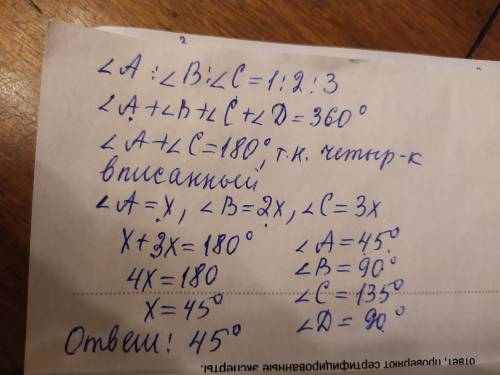 ∠A:∠B:∠C=1:2:3
∠A+∠B+∠C+∠D=360°
∠A+∠C=180°, т.к. четыр-к
вписанный
∠A=x, ∠B=2x, ∠C=3x
x+3x=180°
4x=180
x=45°
∠A=45°
∠B=90°
∠C=135°
∠D=90°
Ответ: 45°
ответ, проверяют сертифицированные эксперты.